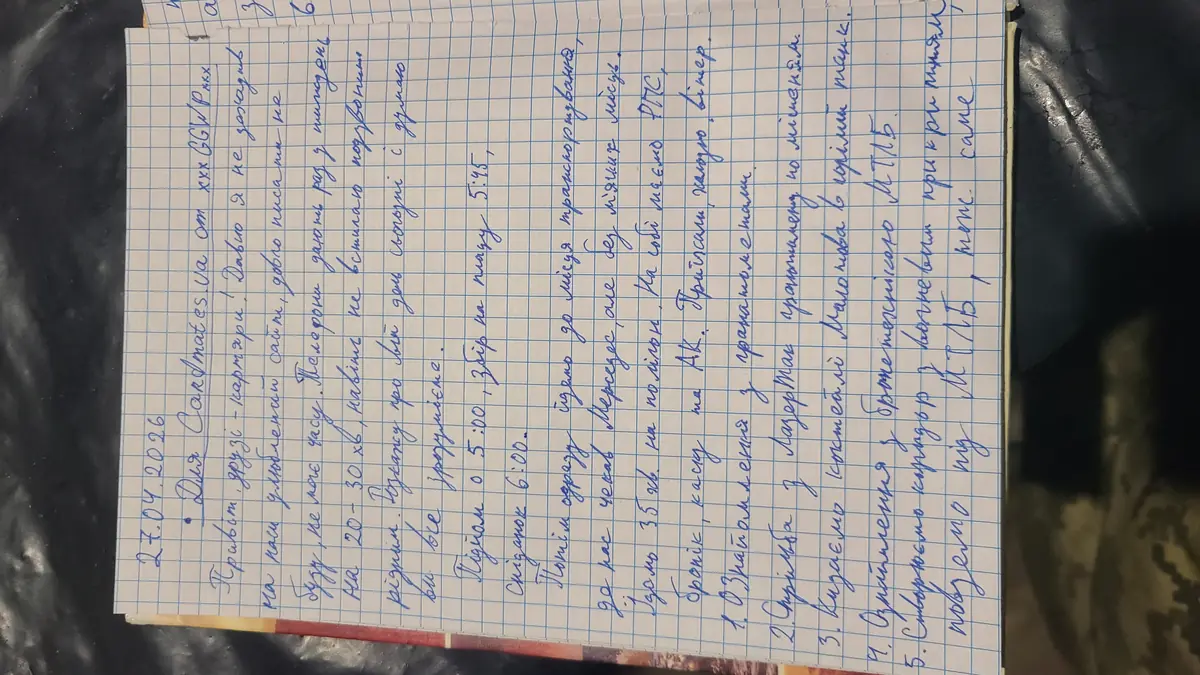 27.04.2026
• Для Cardmates.Ua от xxxGGWPxxx
Привіт. друзі - картярі! Давно я не заходив
на наш улюблений сайт, довго писати не
буду, не має часу. Телефони дають раз у тиждень
на 20-30 хв, навіть не встигаю подзвонити
рідним. Розкажу про мой день сьогодні і думаю
ви все зрозумієте.
Підйом о 5:00, збір на плацу 5:45,
сніданок 6:00.
Потім одразу йдемо до місця транспортування,
де нас чекав Мерседес, але без м'яких місць.
Їдемо 35 хв на полігон. На собі маємо РПС,
бронік, каску та АК. Приїхали, холодно, вітер.
1. Ознайомлення з гранатометами.
2. Стрільба з Лазертаг гранатомету по мішеням.
3. Кидаємо коктейлі Малотова в горілий танк.
4. Ознайомлення з бронетехнікою МТЛБ.
5. Створюємо коридор з вогневым прикриттям,
повземо під МТЛБ, тож саме